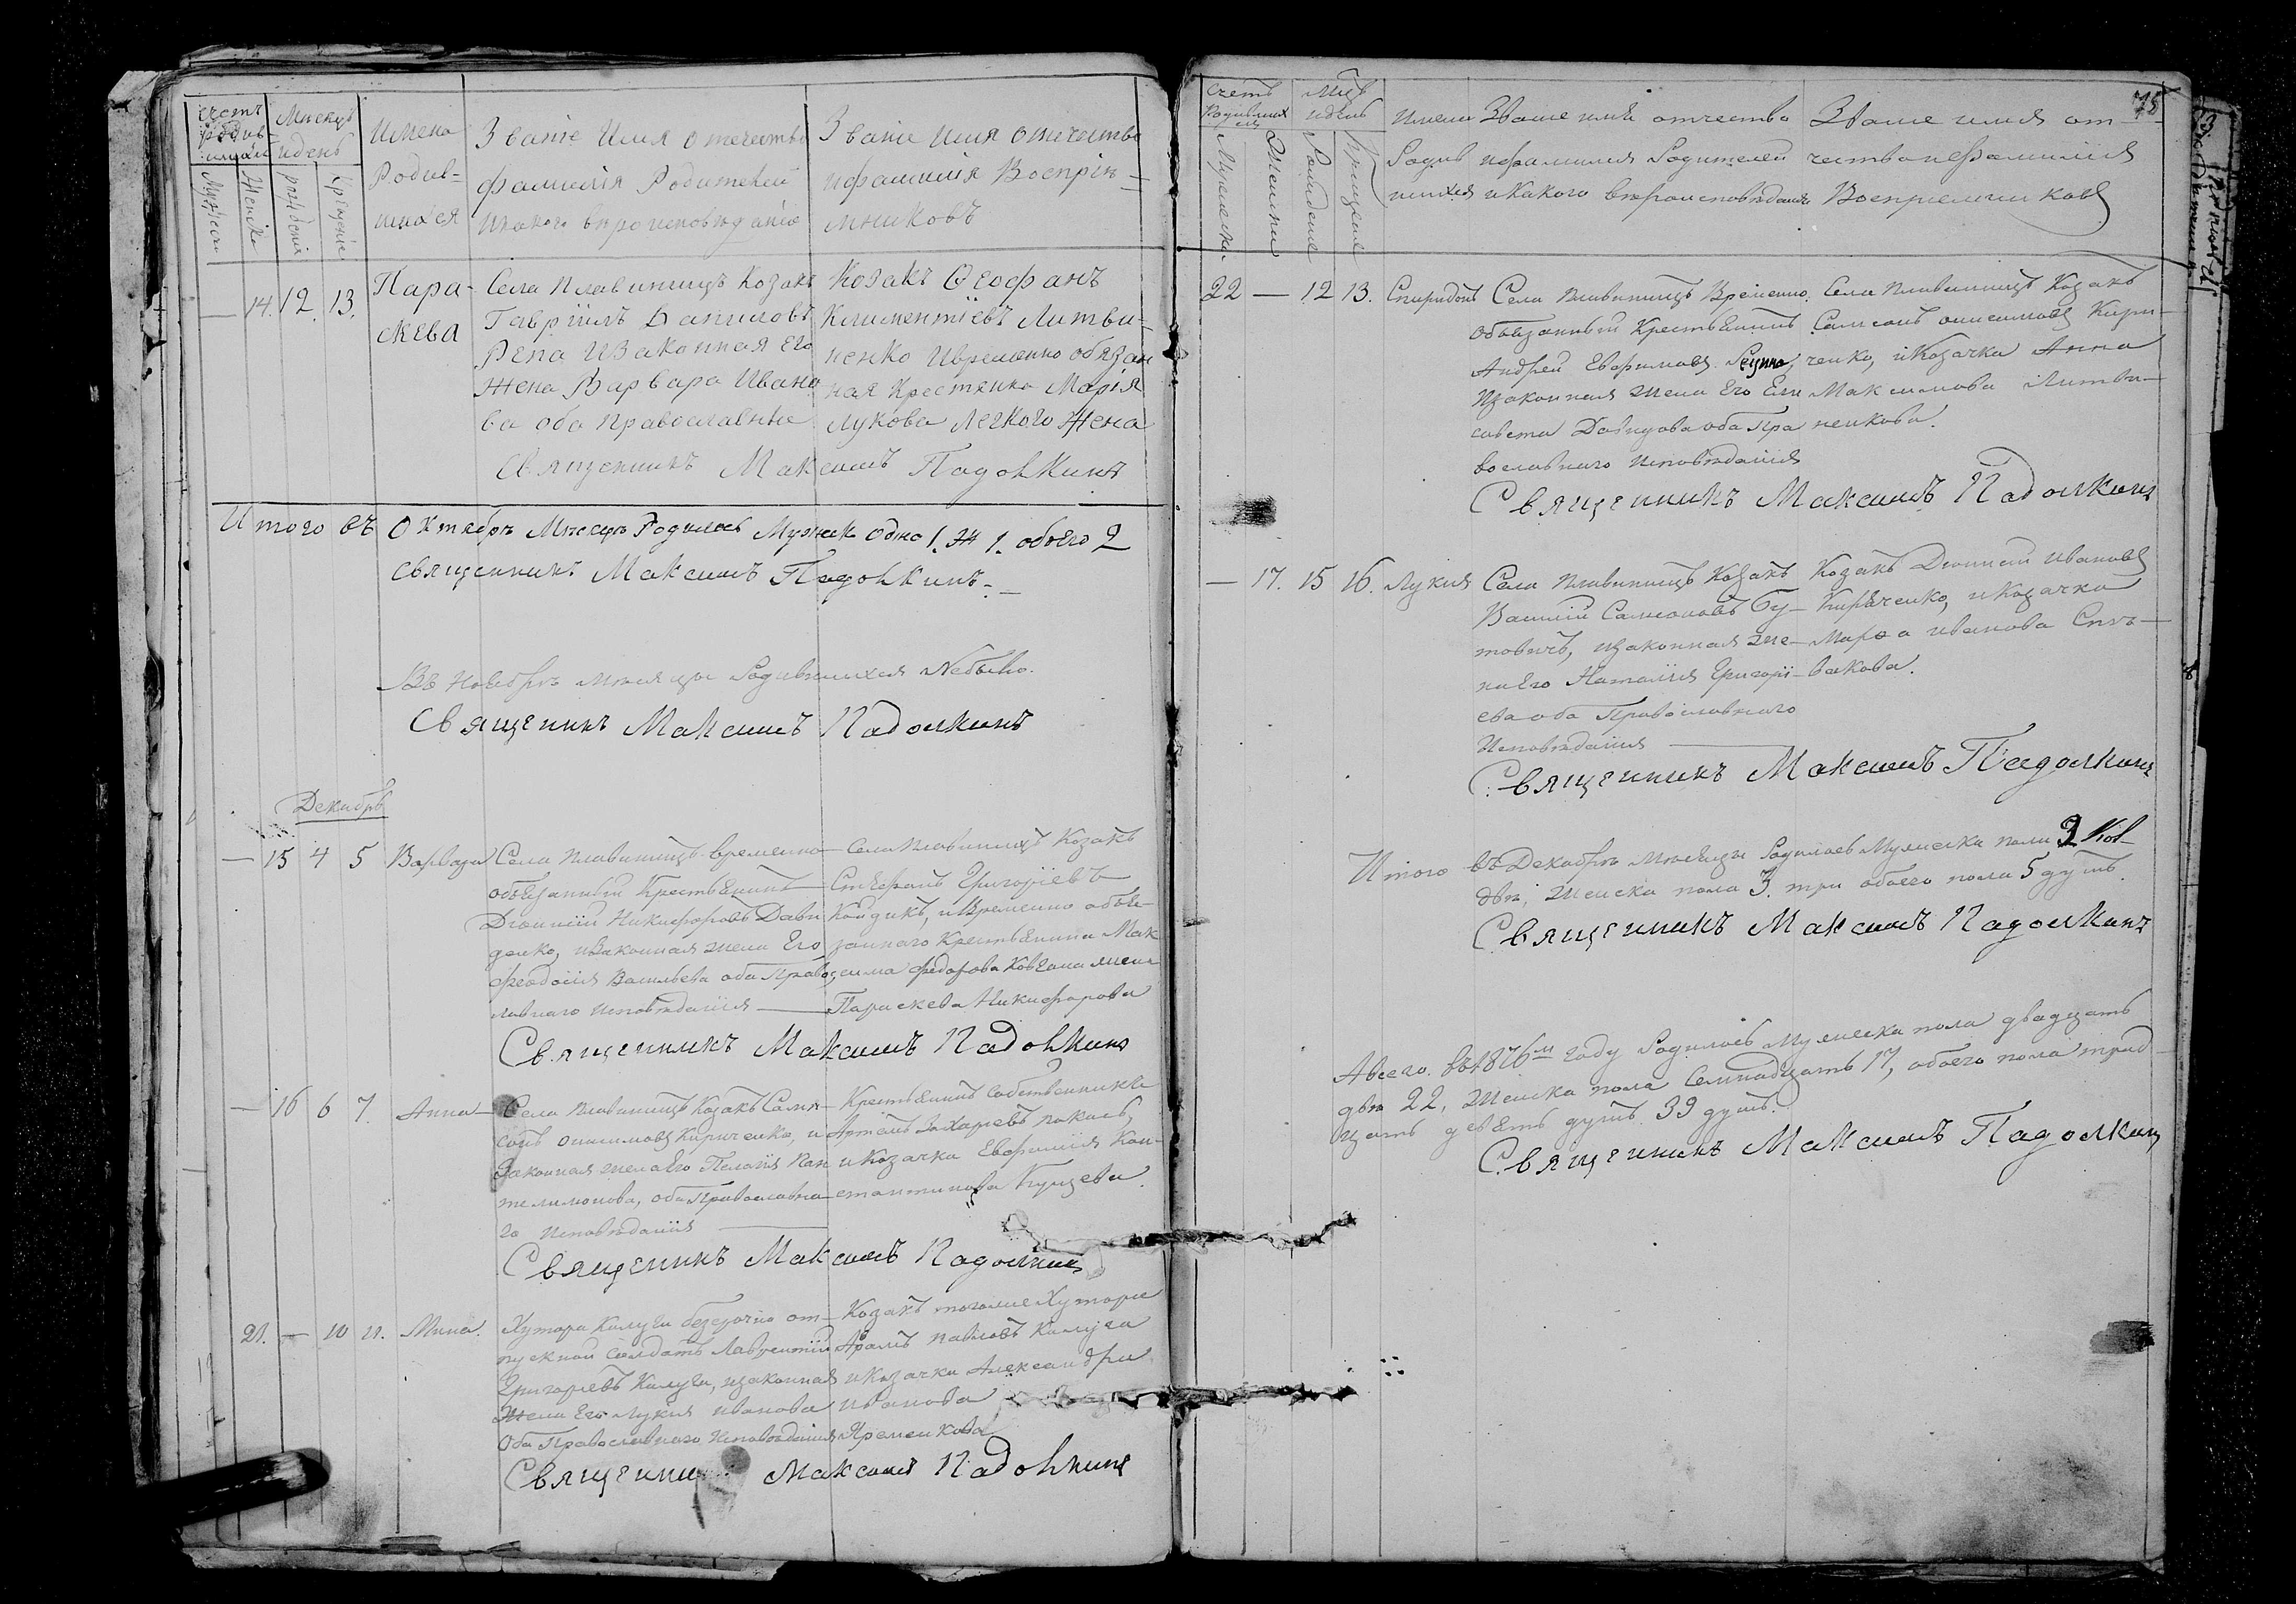 счетъ
родив
шихся
Мѣсяцъ
и день
Имена
Родив-
шихся
Званіе Имя Отечество
фамилія Родителей
и какого вѣроисповѣданія
Званіе Имя Отечество
и фамилія Воспріе-
мниковъ
Мужеска
Женска
рожденія
крещеніе
— 14. 12. 13.
Пара-
скева
Села Плавинищъ Козакъ
Гавріилъ Даниловъ
Репа и Законная Его
Жена Варвара Ивано
ва оба православны
Козакъ Ѳеофанъ
Климентіевъ Литви-
ненко и временно обязан
ная Крестянка Марія
Лукова Легкого Жена
Священникъ Максимъ Падолкинъ
Итого въ Октябрѣ Мѣсяцѣ Родилось Мужск одно 1. Ж 1. обоего 2
Священникъ Максимъ Падолкинъ.
Въ Ноябрѣ мѣсяцѣ Родившихся Небыло.
Священникъ Максимъ Падолкинъ
Декабрь
— 15 4 5 Варвара
Села Плавинищъ временно
обязанный Крестьянинъ
Діонисій Никифоровъ Дави
денко, и Законная жена Его
Феодосія Васильева оба Правос
лавнаго исповѣданія
Села Плавинищъ Козакъ
Стефанъ Григоріевъ
Кайдикъ, и Временно обяз-
заннаго Крестьянина Мак
сима Федорова Ковгана жена
Параскева Никифорова
Священникъ Максимъ Падолкинъ
— 16 6 7. Анна
Села Плавинищъ Козакъ Самп-
сонъ Онисимовъ Кириченко, и
Законная жена Его Пелагія Пан
телимонова, оба Православна
го исповѣданія
Крестьянинъ собственникъ
Артемъ Захаревъ
и Козачка Евфимія Кон-
стантинова
Священникъ Максимъ Падолкинъ
21. — 10 11. Мина.
Хутора Калуги безсрочно от-
пускной солдатъ Лаврентій
Григоріевъ Калуга, и законная
Жена Его Лукія Иванова
Оба Православнаго Исповѣданія
Козакъ тогоже Хутора
Павловъ Калуга
и Козачка Александра
Иванова
Яременкова
Священникъ Максимъ Падолкинъ
75
счетъ
Родивших
ся
Мцъ
и день
Имена
Родив
шихся
Званіе имя отчество
и фамилія Родителей
и какого вѣроисповѣданія
Званіе имя от-
чество и фамилія
Воспріемниковъ
Мужеска
Женска
Рожденіе
Крещеніе
22 — 12 13. Спиридонъ
Села Плавинищъ Временно
обязанный Крестьянинъ
Андрей Евфимовъ
и законная жена Его Ели
савета Давидова оба Пра
вославнаго исповѣданія
Села Плавинищъ Козакъ
Сампсонъ Онисимовъ Кири-
ченко, и Козачка Анна
Максимова Литви-
ненкова.
Священникъ Максимъ Падолкинъ
— 17. 15 16. Лукія
Села Плавинищъ Козакъ
Василій Самсоновъ Бу-
товичъ, и законная же-
на Его Наталія Григорі-
ева оба Православнаго
Исповѣданія
Козакъ Діонисій Ивановъ
Кириченко, и Козачка
Марѳа Иванова Спѣ-
вакова.
Священникъ Максимъ Падолкинъ
Итого въ Декабрѣ Мѣсяцѣ Родилось Мужеска пола 2
два, женска пола 3. три обоего пола 5 душъ.
Священникъ Максимъ Падолкинъ
А всего въ 1876м году Родилось Мужеска пола двадцать
два 22, женска пола Семнадцать 17, обоего пола трид
цать девять душъ 39 душъ.
Священникъ Максимъ Падолкинъ